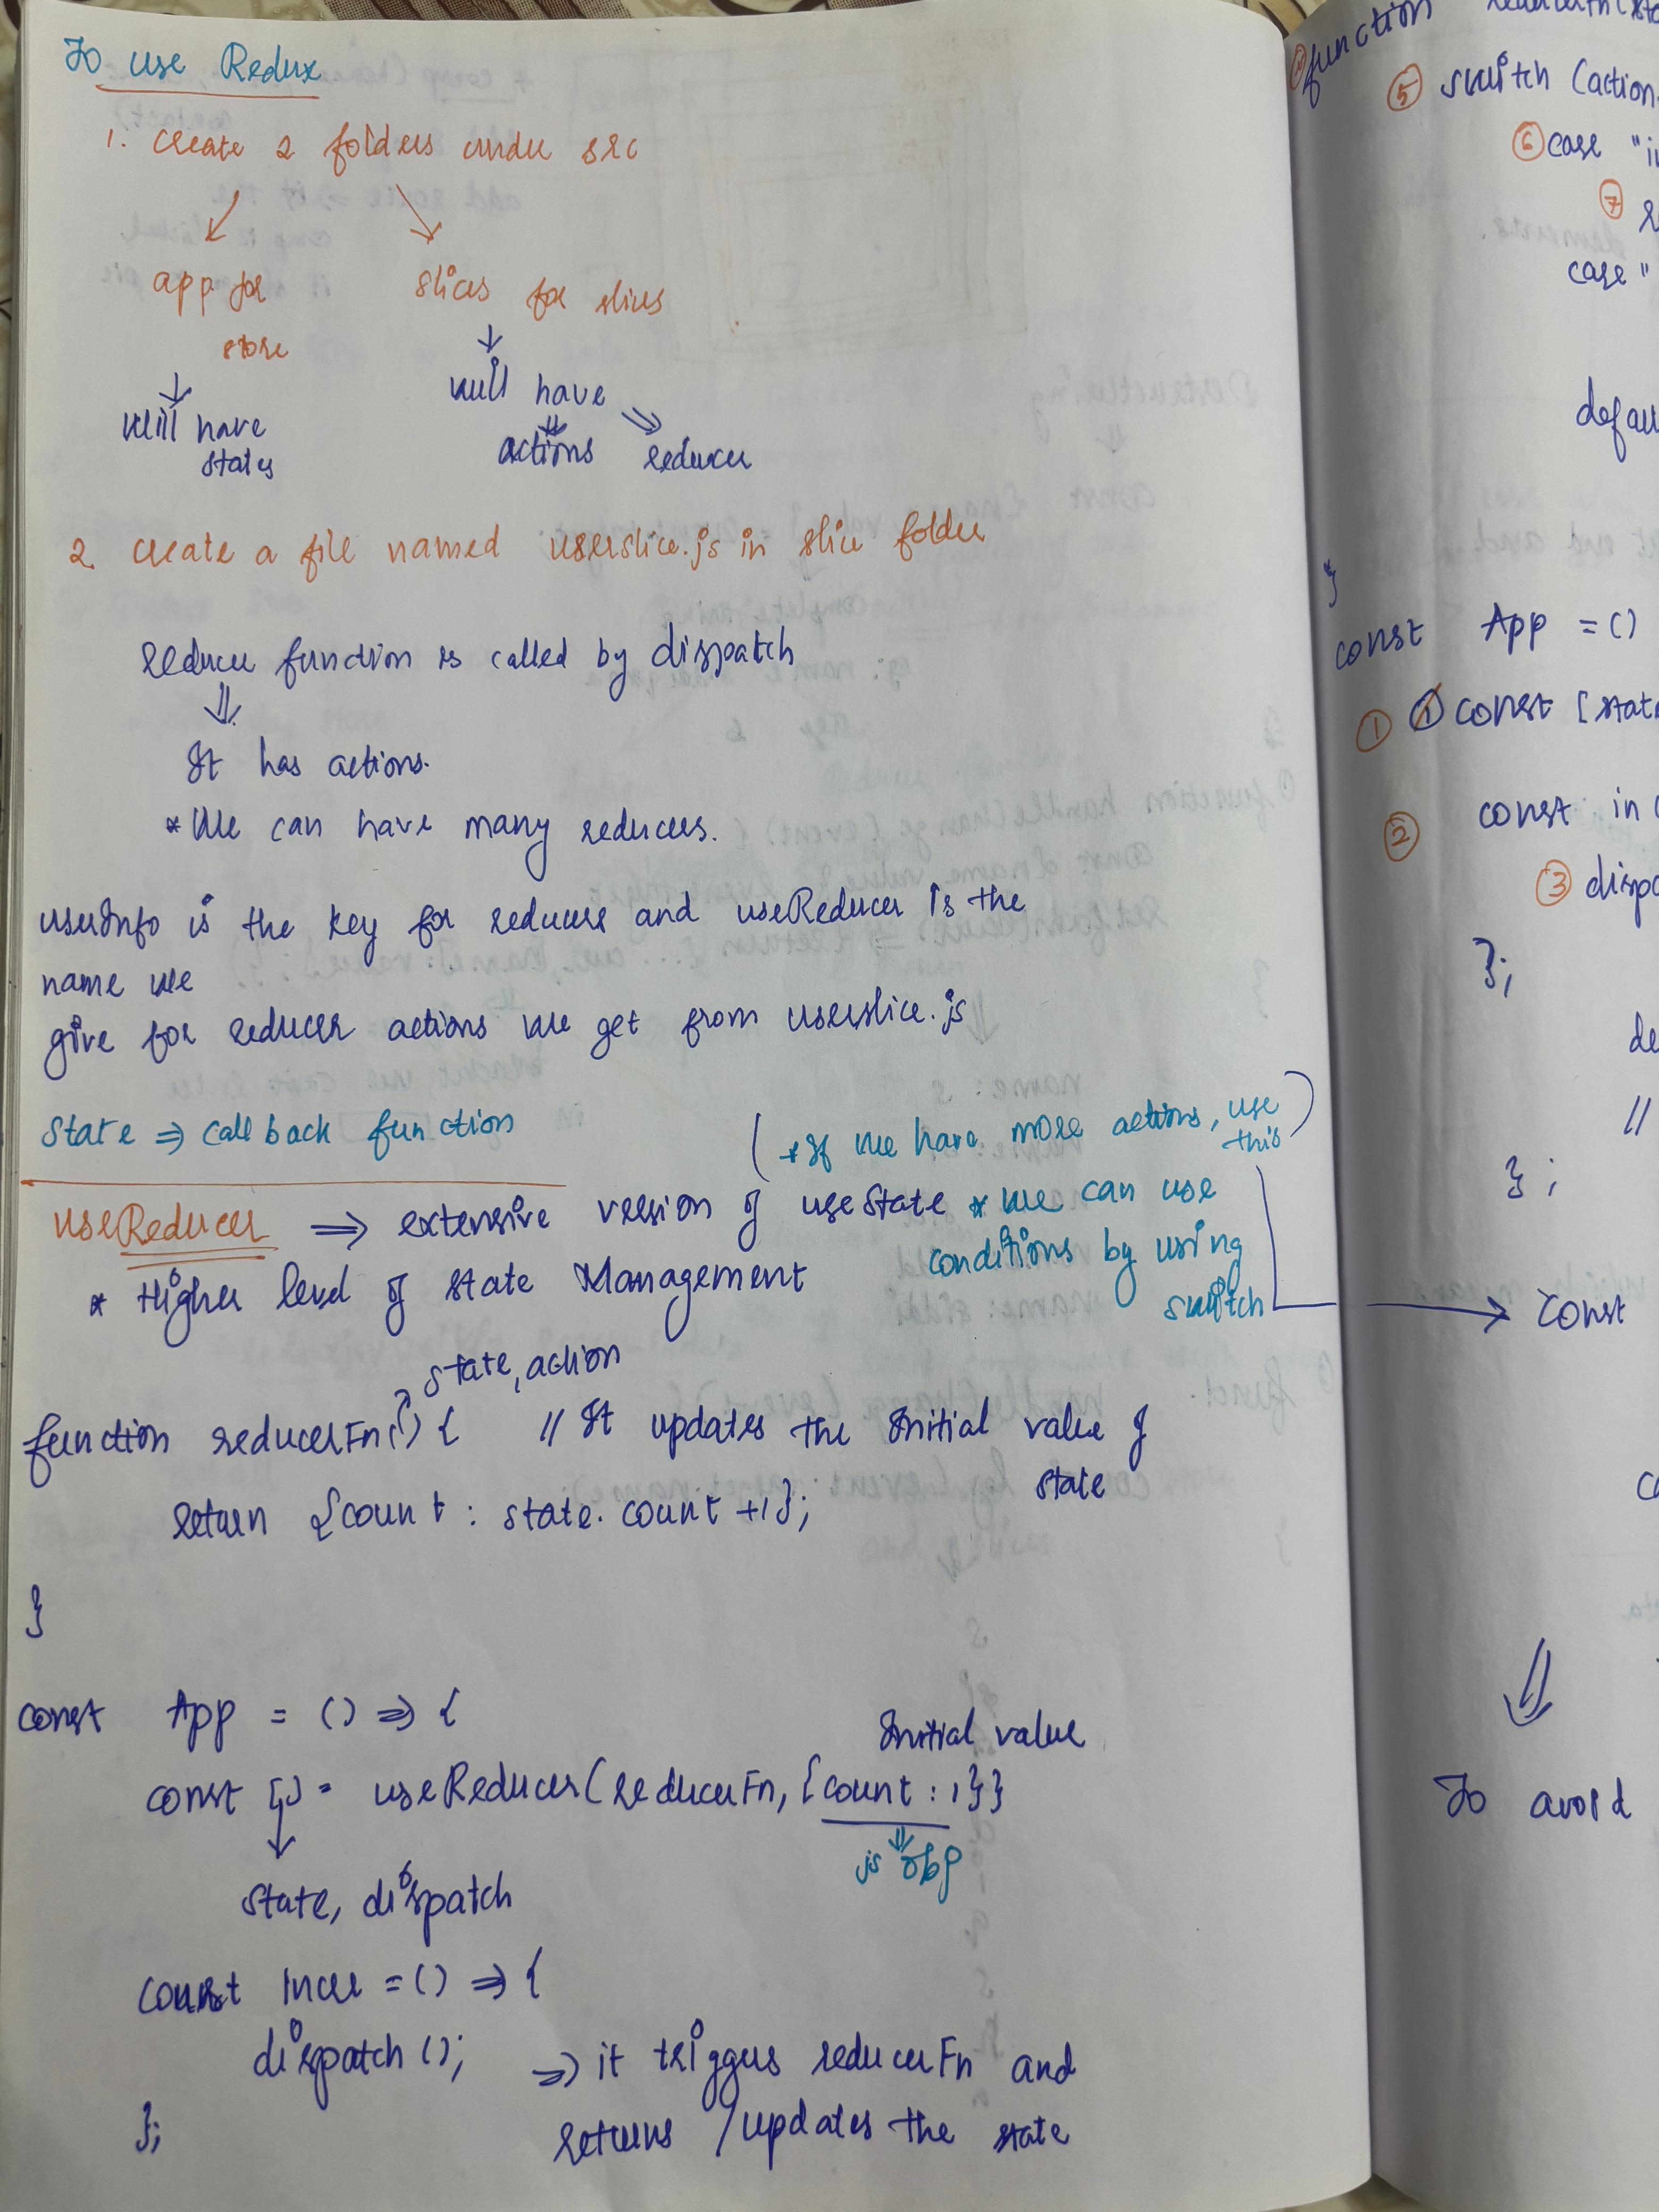 To use Redux
1. Create 2 folders under src
app for store
slices for slices
will have states
will have
actions reducer
2. create a file named userslice.js in slice folder
reducer function is called by dispatch
It has actions.
* We can have many reducers.
userInfo is the key for reducers and useReducer is the
name we
give for reducer actions we get from userslice.js
State ⇒ call back function
(* If we have more actions, use this)
useReducer ⇒ extensive version of useState * we can use
conditions by using
switch
* Higher level of state Management
state, action
function reducerFn() { // It updates the Initial value of
state
return {count : state.count +1};
}
const App = () => {
Initial value
const [,] = useReducer(reducerFn, {count : 1}}
js obj
state, dispatch
const Incre = () => {
dispatch (); ⇒ it triggers reducerFn and
}; returns / updates the state
function
5 switch (action.
6 case "i
7
case "
defau
}
const App = ()
1 1 const [stat
2 const in
3 dispa
};
de
//
};
const
co
To avoid